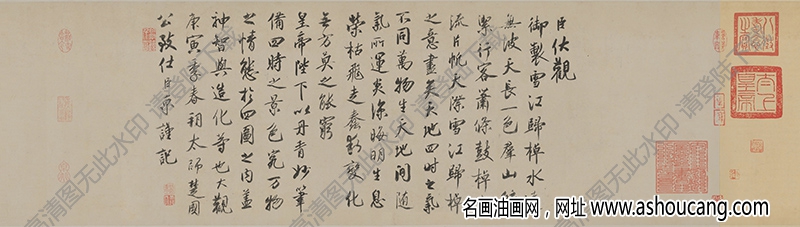 臣伏觀
御製雪江歸棹水
無波天長一色群山
潔行客蕭條鼓棹
流片帆天際雪江歸棹
之意盡矣天地四時之氣
不同萬物生天地間隨
氣所運炎涼晦明生息
榮枯飛走蠢動變化
無方莫之能窮
皇帝陛下以丹青妙筆
備四時之景色究萬物
之情態於四圖之內蓋
神智與造化等也大觀
庚寅季春朔太師楚國
公致仕臣京謹記
太上
皇帝
名画油画网，网址 www.ashoucang.com
高清图无此水印 请登陆下载